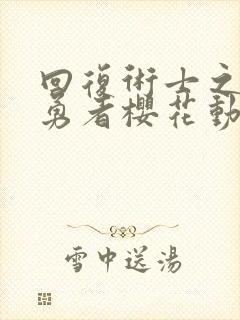 回復術士之
勇者櫻花動
雪中送湯